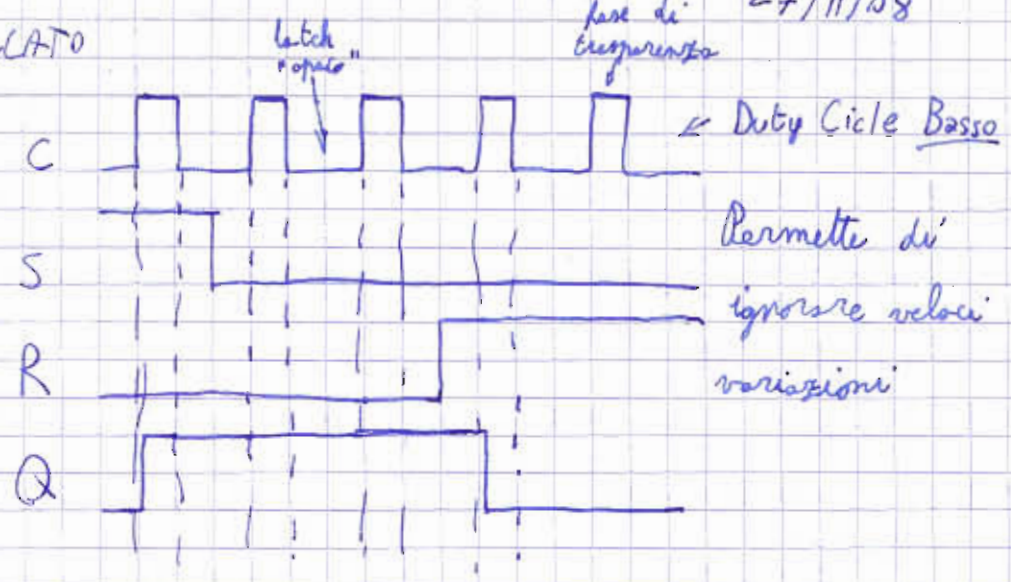 27/11/08
CATO
latch
"opaco"
fase di
trasparenza
C
Duty Cicle Basso
S
Permette di
ignorare veloci
R
variazioni
Q